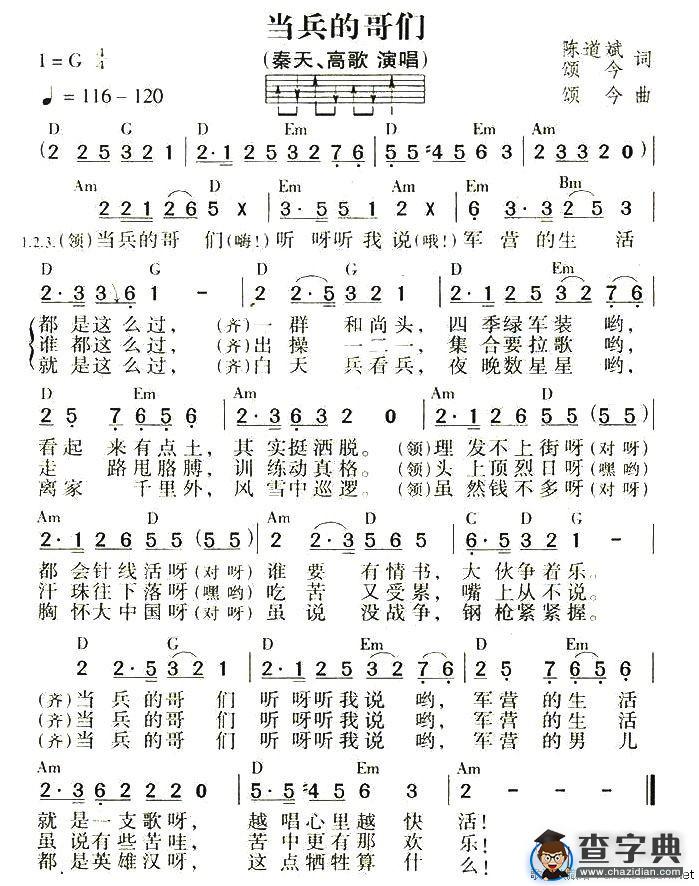 当兵的哥们
1=G 4/4
(秦天、高歌 演唱)
陈道斌 词
颂今
♩=116-120
颂今 曲
D G D Em D Em Am
(2 25321 | 2·1253276 | 55#4563 | 23320) |
Am D Em Am Em Bm
221265 X | 3·551 2 X | 6 3·3253 |
1.2.3.(领)当兵的哥们(嗨!)听呀听我说(哦!)军营的生活
D G D G D Em
2·3361 - | 2 2·5321 | 2·1253276 |
都是这么过, (齐)一群和尚头, 四季绿军装哟,
谁都这么过, (齐)出操一二一, 集合要拉歌哟,
就是这么过, (齐)白天兵看兵, 夜晚数星星哟,
D Em Am Am D
25 7656 | 2·3632 0 | 2·12655(55) |
看起来有点土, 其实挺洒脱。 (领)理发不上街呀(对呀)
走路甩胳膊, 训练动真格。 (领)头上顶烈日呀(嘿哟)
离家千里外, 风雪中巡逻。 (领)虽然钱不多呀(对呀)
Am D Am D C D G
2·12655(55) | 2 2·3565 | 6·5321 - |
都会针线活呀(对呀)谁要有情书, 大伙争着乐。
汗珠往下落呀(嘿哟)吃苦又受累, 嘴上从不说。
胸怀大中国呀(对呀)虽说没战争, 钢枪紧紧握。
D G D Em D Em
2 2·5321 | 2·1253276 | 25 7656 |
(齐)当兵的哥们 听呀听我说哟, 军营的生活
(齐)当兵的哥们 听呀听我说哟, 军营的生活
(齐)当兵的哥们 听呀听我说哟, 军营的男儿
Am D Em Am
2·362220 | 5·5#4563 | 2 - - - ‖
就是一支歌呀, 越唱心里越快活!
虽说有些苦哇, 苦中更有那欢乐!
都是英雄汉呀, 这点牺牲算什么!
查字典
www.chazidian.com